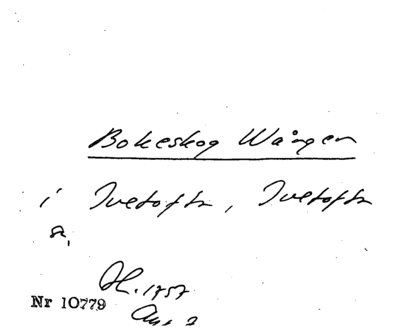 Bokeskog Wången
i Ivetofta, Ivetofta
sn,
H. 1757
Nr 10779